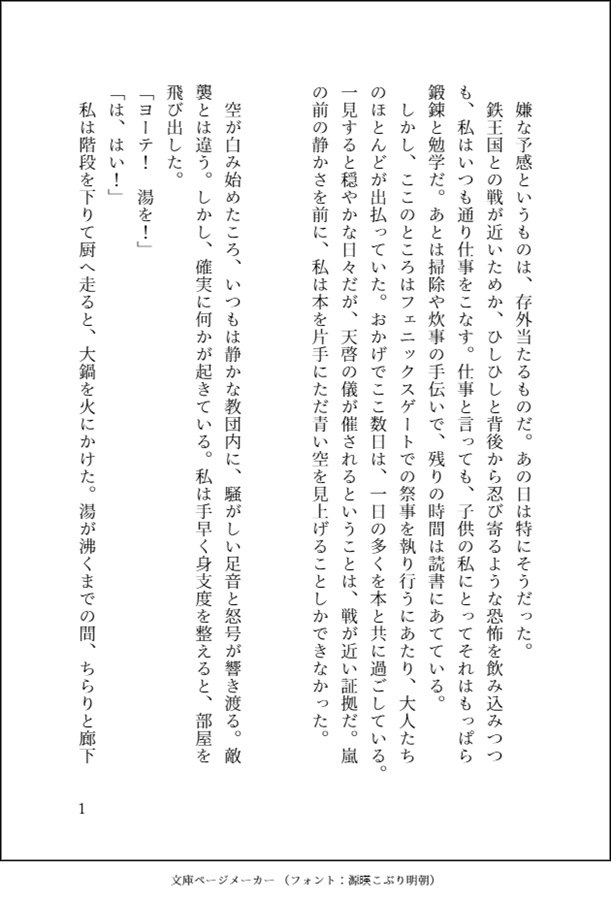 嫌な予感というものは、存外当たるものだ。あの日は特にそうだった。
　鉄王国との戦が近いためか、ひしひしと背後から忍び寄るような恐怖を飲み込みつつ
も、私はいつも通り仕事をこなす。仕事と言っても、子供の私にとってそれはもっぱら
鍛錬と勉学だ。あとは掃除や炊事の手伝いで、残りの時間は読書にあてている。
　しかし、ここのところはフェニックスゲートでの祭事を執り行うにあたり、大人たち
のほとんどが出払っていた。おかげでここ数日は、一日の多くを本と共に過ごしている。
一見すると穏やかな日々だが、天啓の儀が催されるということは、戦が近い証拠だ。嵐
の前の静かさを前に、私は本を片手にただ青い空を見上げることしかできなかった。
　空が白み始めたころ、いつもは静かな教団内に、騒がしい足音と怒号が響き渡る。敵
襲とは違う。しかし、確実に何かが起きている。私は手早く身支度を整えると、部屋を
飛び出した。
「ヨーテ！　湯を！」
「は、はい！」
　私は階段を下りて厨へ走ると、大鍋を火にかけた。湯が沸くまでの間、ちらりと廊下
1
文庫ページメーカー （フォント：源暎こぶり明朝）